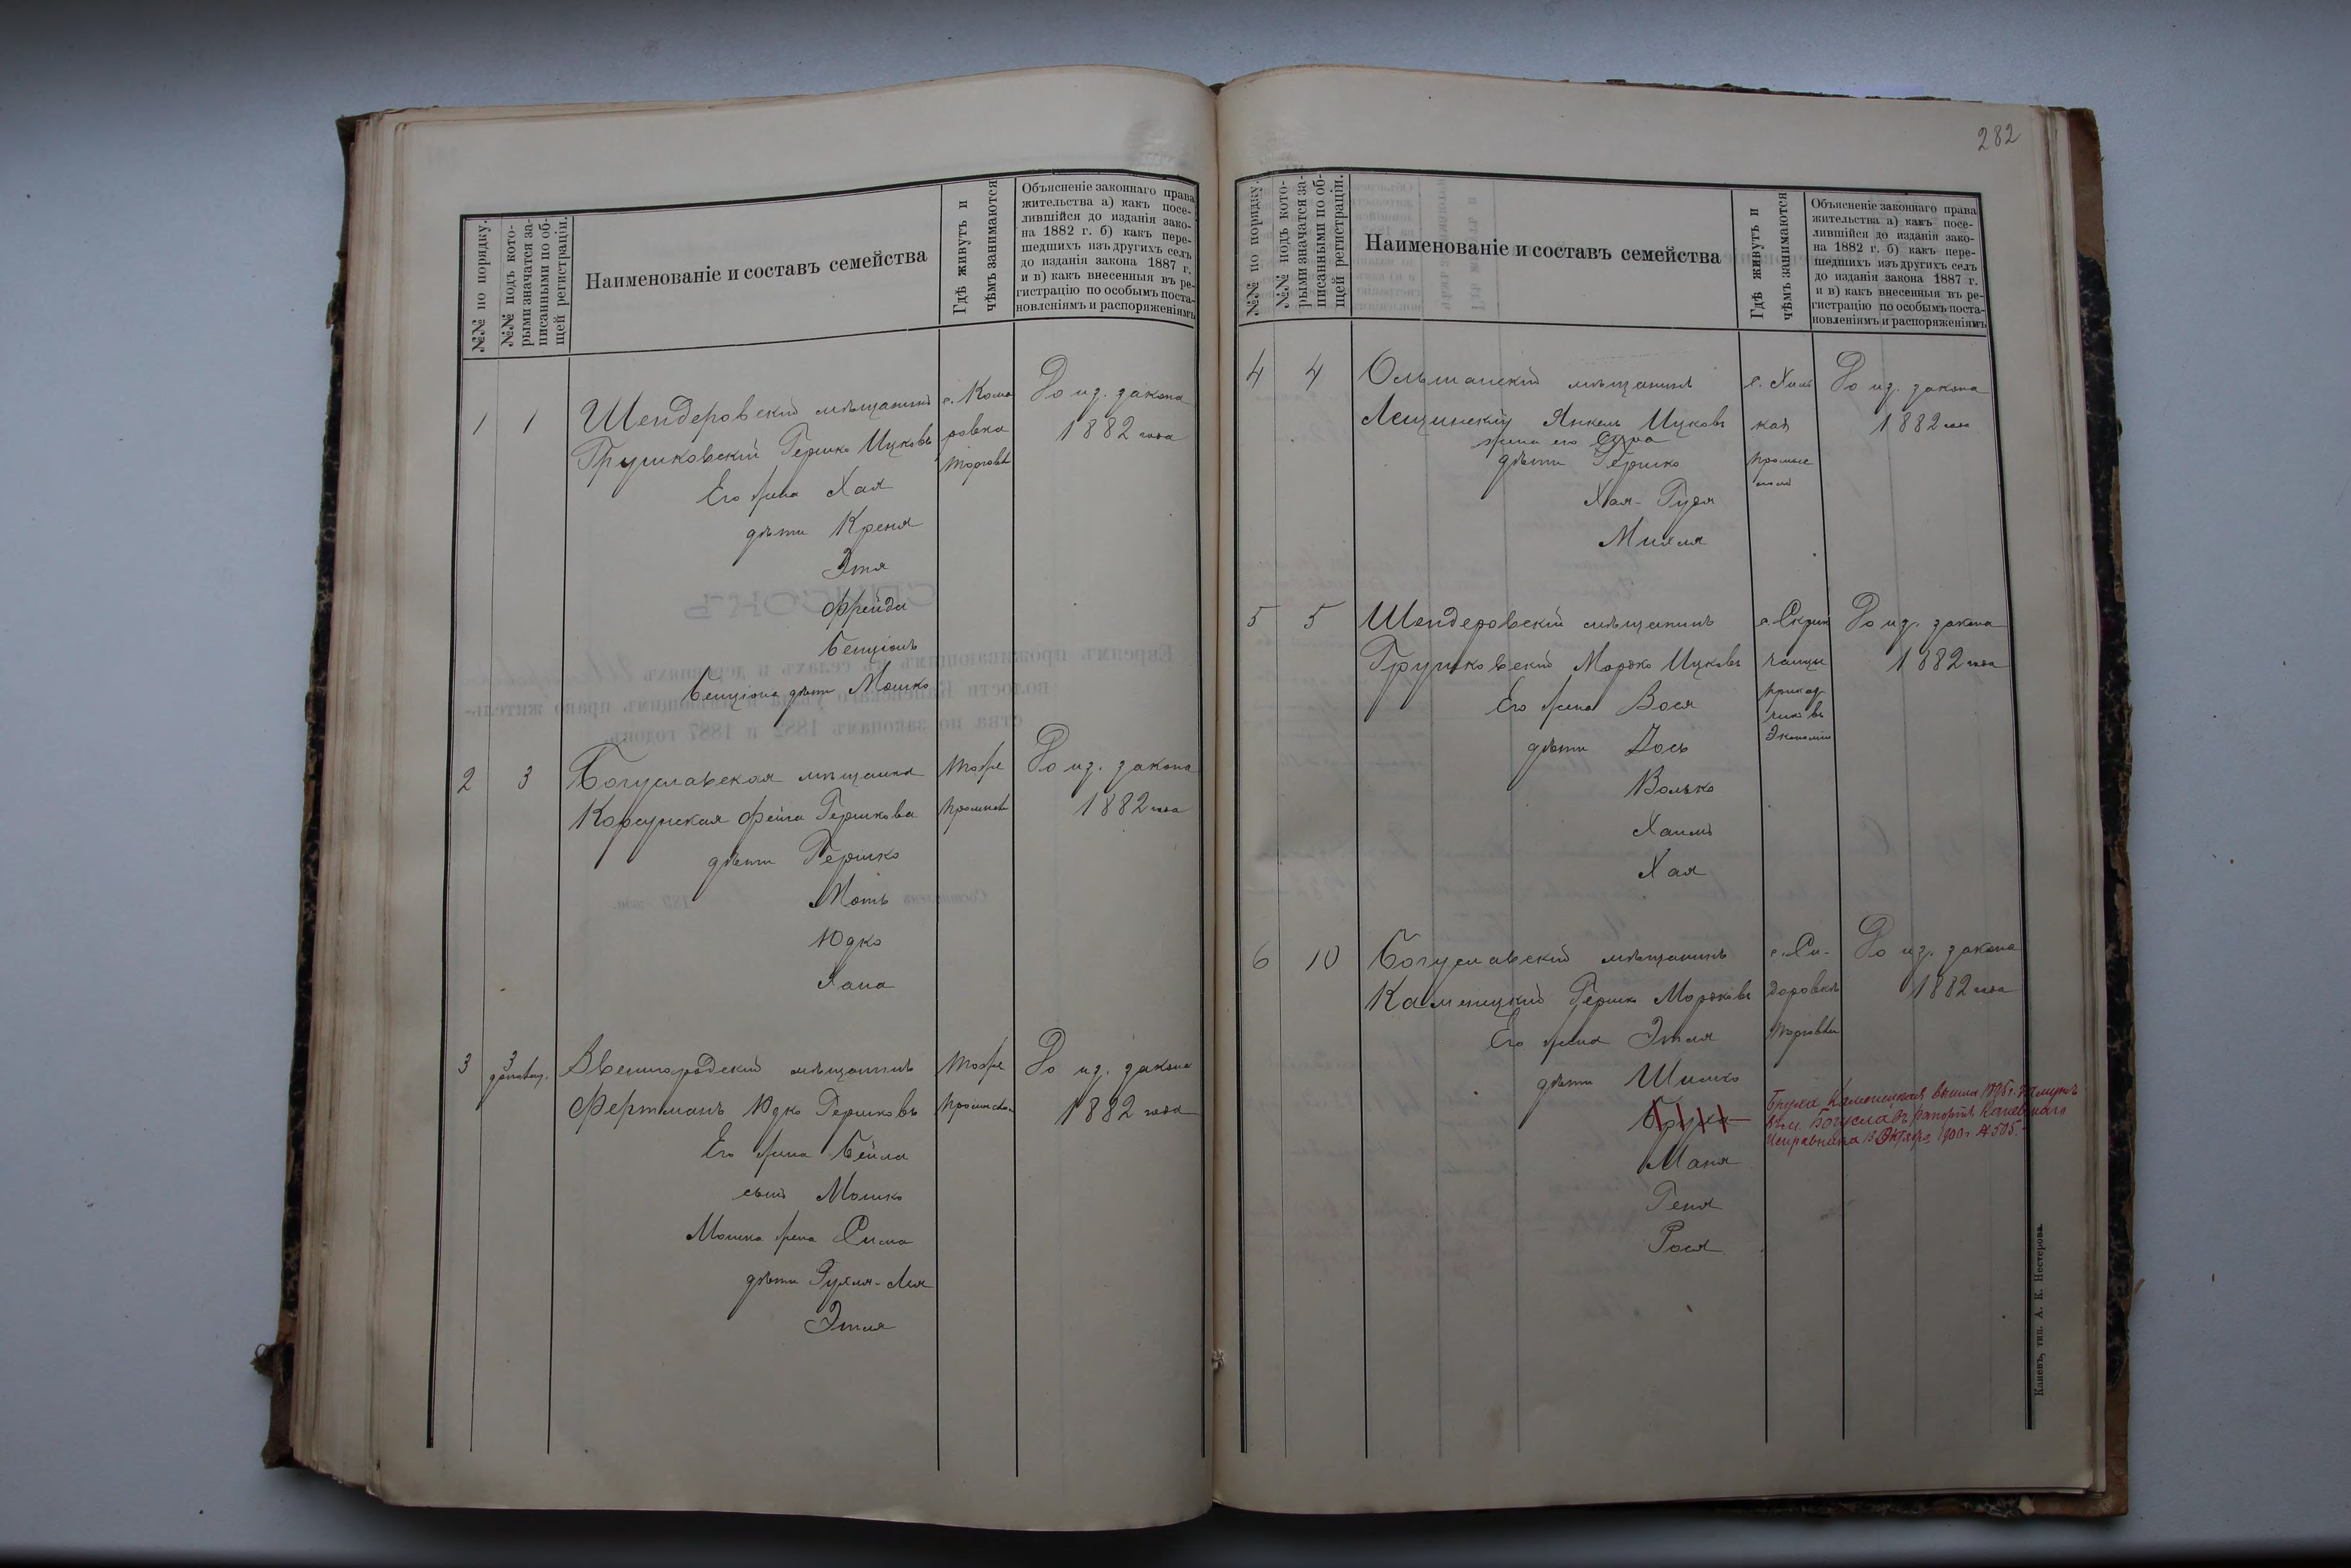 №№ по порядку.
№№ подъ кото-
рыми значатся за-
писанными по об-
щей регистраціи.
Наименованіе и составъ семейства
Гдѣ живутъ и
чѣмъ занимаются
Объясненіе законнаго права
жительства а) какъ посе-
лившійся до изданія зако-
на 1882 г. б) какъ пере-
шедшихъ изъ другихъ селъ
до изданія закона 1887 г.
и в) какъ внесенныя въ ре-
гистрацію по особымъ поста-
новленіямъ и распоряженіямъ
1 1 Шендеровскій мѣщанинъ с. Кома До из. закона
Грушковскій Гершко Ицковъ ровка 1882 года
торговл
Его жена Хая
дѣти Креня
Этя
Фрейда
Бенціонъ
Бенціона дѣти Мошко
2 3 Богуславская мѣщанка тоже До из. закона
Корсунская Фейга Гершкова 1882 года
дѣти Гершко
Моть
Юдко
Хана
3 3 Звенигородскій мѣщанинъ тоже До из. закона
Фертманъ Юдко Гершковъ 1882 года
Его жена Бейла
сынъ Мошко
Мошка жена Сима
дѣти Рухля-Лея
Этля
282
№№ по порядку.
№№ подъ кото-
рыми значатся за-
писанными по об-
щей регистраціи.
Наименованіе и составъ семейства
Гдѣ живутъ и
чѣмъ занимаются
Объясненіе законнаго права
жительства а) какъ посе-
лившійся до изданія зако-
на 1882 г. б) какъ пере-
шедшихъ изъ другихъ селъ
до изданія закона 1887 г.
и в) какъ внесенныя въ ре-
гистрацію по особымъ поста-
новленіямъ и распоряженіямъ
4 4 Ольшанскій мѣщанинъ До из. закона
Лещинскій Янкель Ицковъ 1882 года
жена его Сура
дѣти Гершко
Хая-Гудя
Михля
5 5 Шендеровскій мѣщанинъ До из. закона
Грушковскій Мордко Ицковъ 1882 года
Его жена Вося приказ
дѣти Дось чикъ въ
Экономіи
Волько
Хаимъ
Хая
6 10 Богуславскій мѣщанинъ с. Си- До из. закона
Каменецкій Гершко Мордковъ доровкѣ 1882 года
Его жена Этля торговл
дѣти Шимко
Бруха
Бруха Каменецкая вышла 1898 г. замужъ
въ м. Богуславъ рапортъ Каневскаго
Исправника 13 Октября 1900 г. № 505.
Маня
Геня
Рося
Каневъ, тип. А. К. Нестерова.